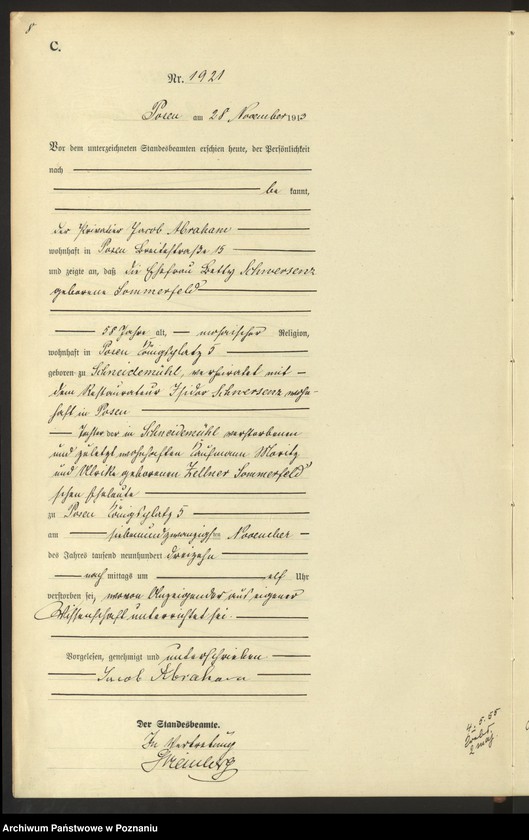 8
C.
Nr. 1921
Posen am 28 November 1913
Vor dem unterzeichneten Standesbeamten erschien heute, der Persönlichkeit
nach
be kannt,
der Privatier Jacob Abraham
wohnhaft in Posen Breitestraße 15
und zeigte an, daß die Ehefrau Betty Schwersenz
geborene Sommerfeld
58 Jahre alt, mosaischer Religion,
wohnhaft in Posen Königsplatz 5
geboren zu Schneidemühl, verheiratet mit
dem Restaurateur Isidor Schwersenz wohn-
haft in Posen
Tochter der in Schneidemühl verstorbenen
und zuletzt wohnhaften Kaufmann Moritz
und Ulrike geborenen Zellner Sommerfeld'
schen Eheleute
zu Posen Königsplatz 5
am siebenundzwanzigsten November
des Jahres tausend neunhundert dreizehn
nach mittags um elf Uhr
verstorben sei, wovon Anzeigender aus eigener
Wissenschaft unterrichtet sei.
Vorgelesen, genehmigt und unterschrieben
Jacob Abraham
Der Standesbeamte.
In Vertretung
Archiwum Państwowe w Poznaniu